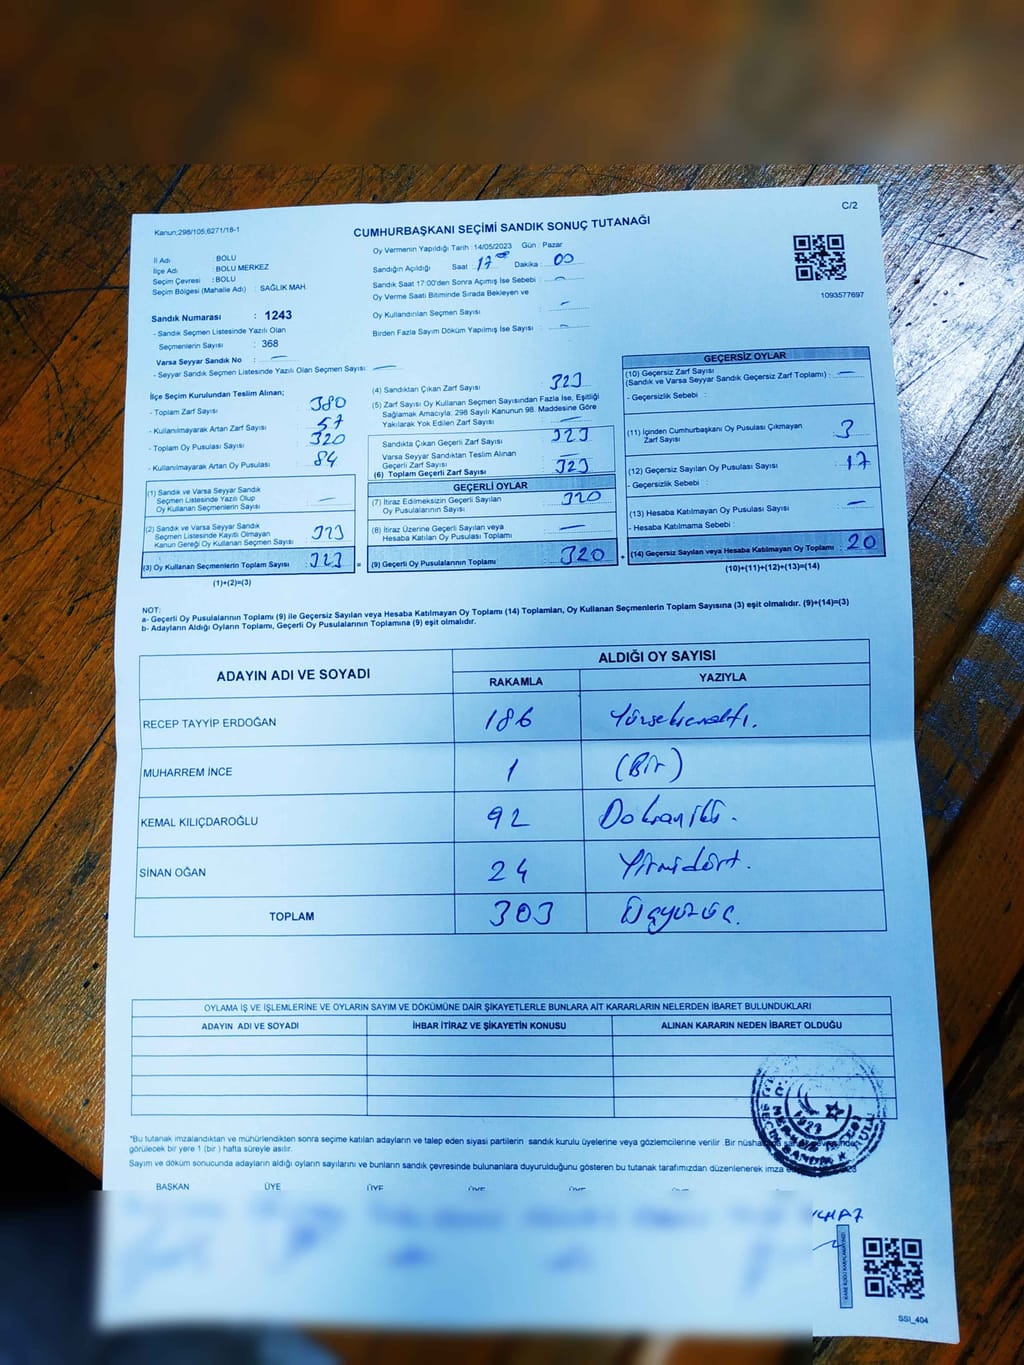 C/2
Kanun;298/105;6271/18-1
CUMHURBAŞKANI SEÇİMİ SANDIK SONUÇ TUTANAĞI
İl Adı : BOLU
İlçe Adı : BOLU MERKEZ
Seçim Çevresi : BOLU
Seçim Bölgesi (Mahalle Adı) : SAĞLIK MAH.
Sandık Numarası : 1243
- Sandık Seçmen Listesinde Yazılı Olan
Seçmenlerin Sayısı : 368
Varsa Seyyar Sandık No : —
- Seyyar Sandık Seçmen Listesinde Yazılı Olan Seçmen Sayısı: —
Oy Vermenin Yapıldığı Tarih :14/05/2023 Gün : Pazar
Sandığın Açıldığı Saat 17 Dakika : 00
Sandık Saat 17:00'den Sonra Açımış İse Sebebi : —
Oy Verme Saati Bitiminde Sırada Bekleyen ve
Oy Kullandırılan Seçmen Sayısı : —
Birden Fazla Sayım Döküm Yapılmış İse Sayısı : —
1093577697
İlçe Seçim Kurulundan Teslim Alınan;
- Toplam Zarf Sayısı : 380
- Kullanılmayarak Artan Zarf Sayısı : 57
- Toplam Oy Pusulası Sayısı : 320
- Kullanılmayarak Artan Oy Pusulası : 84
(1) Sandık ve Varsa Seyyar Sandık
Seçmen Listesinde Yazılı Olup
Oy Kullanan Seçmenlerin Sayısı : —
(2) Sandık ve Varsa Seyyar Sandık
Seçmen Listesinde Kayıtlı Olmayan
Kanun Gereği Oy Kullanan Seçmen Sayısı : 323
(3) Oy Kullanan Seçmenlerin Toplam Sayısı : 323
(1)+(2)=(3)
(4) Sandıktan Çıkan Zarf Sayısı : 323
(5) Zarf Sayısı Oy Kullanan Seçmen Sayısından Fazla İse, Eşitliği
Sağlamak Amacıyla; 298 Sayılı Kanunun 98. Maddesine Göre
Yakılarak Yok Edilen Zarf Sayısı : —
Sandıkta Çıkan Geçerli Zarf Sayısı : 323
Varsa Seyyar Sandıktan Teslim Alınan
Geçerli Zarf Sayısı : —
(6) Toplam Geçerli Zarf Sayısı : 323
GEÇERLİ OYLAR
(7) İtiraz Edilmeksizin Geçerli Sayılan
Oy Pusulalarının Sayısı : 320
(8) İtiraz Üzerine Geçerli Sayılan veya
Hesaba Katılan Oy Pusulası Toplamı : —
= (9) Geçerli Oy Pusulalarının Toplamı : 320
GEÇERSİZ OYLAR
(10) Geçersiz Zarf Sayısı
(Sandık ve Varsa Seyyar Sandık Geçersiz Zarf Toplamı) : —
- Geçersizlik Sebebi :
(11) İçinden Cumhurbaşkanı Oy Pusulası Çıkmayan
Zarf Sayısı : 3
(12) Geçersiz Sayılan Oy Pusulası Sayısı : 17
- Geçersizlik Sebebi :
(13) Hesaba Katılmayan Oy Pusulası Sayısı : —
- Hesaba Katılmama Sebebi :
+ (14) Geçersiz Sayılan veya Hesaba Katılmayan Oy Toplamı : 20
(10)+(11)+(12)+(13)=(14)
NOT:
a- Geçerli Oy Pusulalarının Toplamı (9) ile Geçersiz Sayılan veya Hesaba Katılmayan Oy Toplamı (14) Toplamları, Oy Kullanan Seçmenlerin Toplam Sayısına (3) eşit olmalıdır. (9)+(14)=(3)
b- Adayların Aldığı Oyların Toplamı, Geçerli Oy Pusulalarının Toplamına (9) eşit olmalıdır.
ADAYIN ADI VE SOYADI ALDIĞI OY SAYISI
RAKAMLA YAZIYLA
RECEP TAYYİP ERDOĞAN 186 Yüzseksenaltı.
MUHARREM İNCE 1 (Bir)
KEMAL KILIÇDAROĞLU 92 Doksaniki.
SİNAN OĞAN 24 Yirmidört.
TOPLAM 303 Üçyüzüç.
OYLAMA İŞ VE İŞLEMLERİNE VE OYLARIN SAYIM VE DÖKÜMÜNE DAİR ŞİKAYETLERLE BUNLARA AİT KARARLARIN NELERDEN İBARET BULUNDUKLARI
ADAYIN ADI VE SOYADI İHBAR İTİRAZ VE ŞİKAYETİN KONUSU ALINAN KARARIN NEDEN İBARET OLDUĞU
*Bu tutanak imzalandıktan ve mühürlendikten sonra seçime katılan adayların ve talep eden siyasi partilerin sandık kurulu üyelerine veya gözlemcilerine verilir. Bir
görülecek bir yere 1 (bir) hafta süreyle asılır.
Sayım ve döküm sonucunda adayların aldığı oyların sayılarını ve bunların sandık çevresinde bulunanlara duyurulduğunu gösteren bu tutanak tarafımızdan düzenlenerek imza
BAŞKAN ÜYE ÜYE ÜYE ÜYE
SSI_404